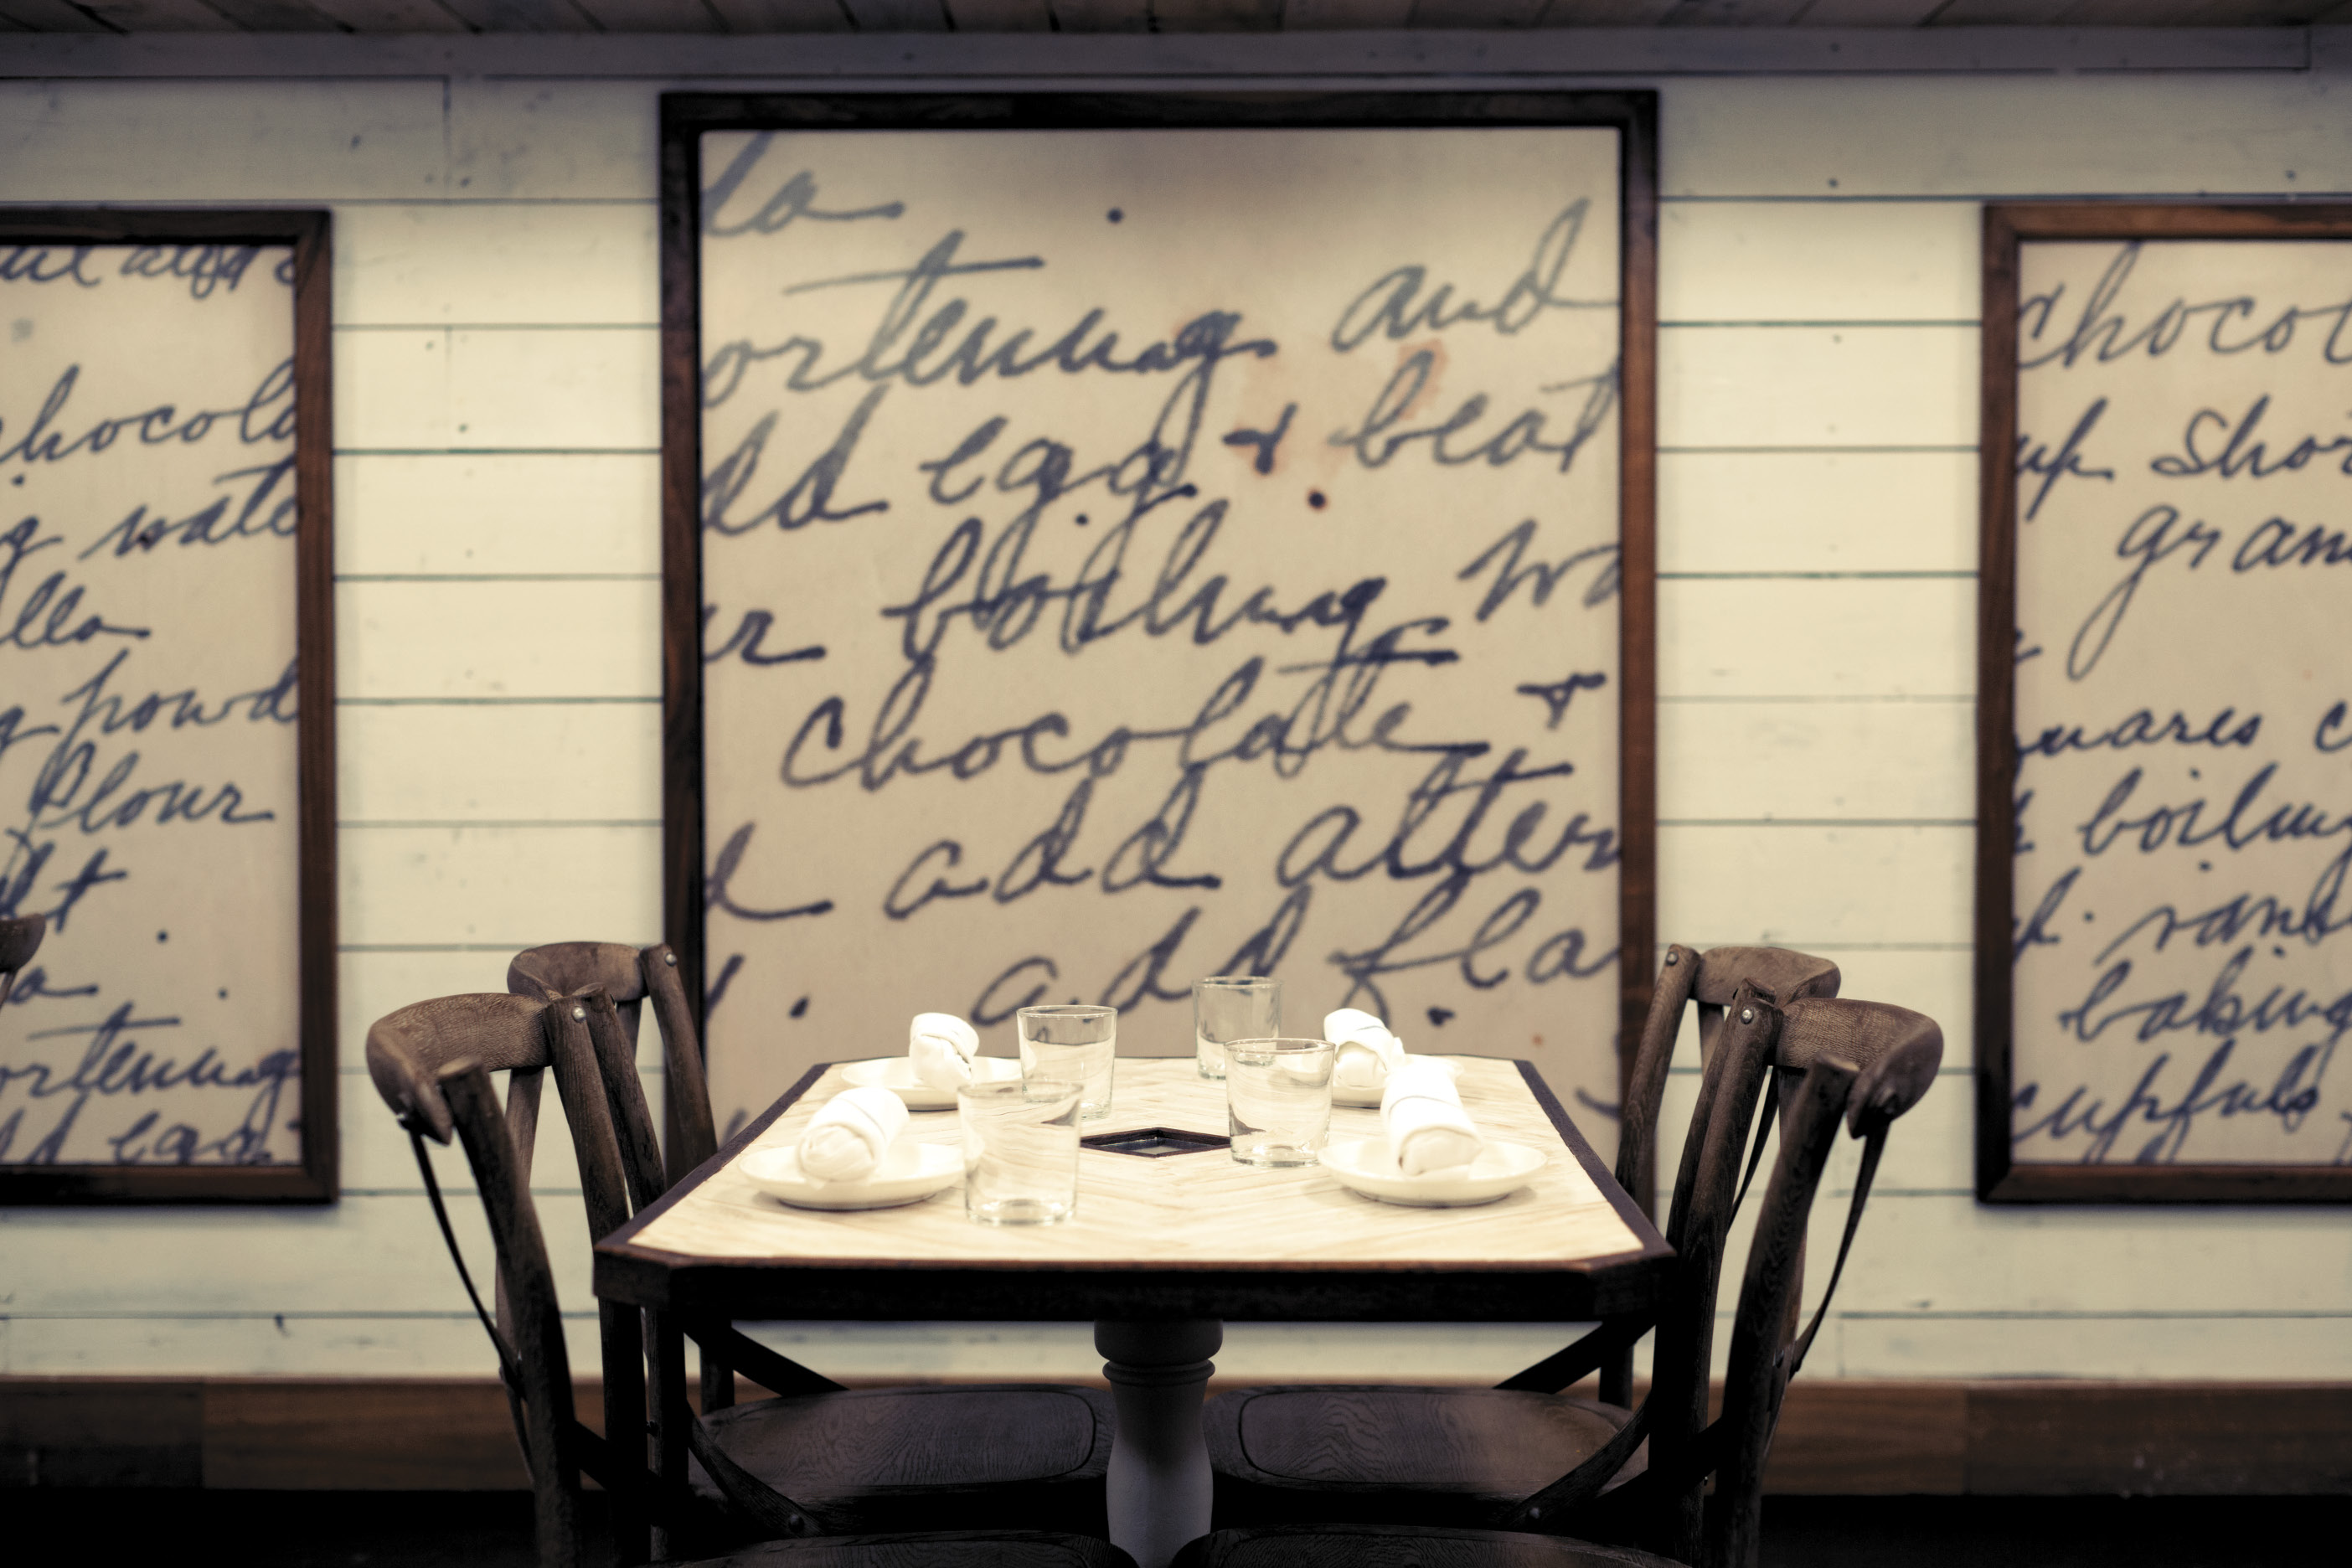 chocola
g wate
lla
g powd
flour
lt
a
ortening
dd egg
da
ortening and
dd egg & beat
ur boiling wa
chocolate &
d add altern
add fla
chocol
up Shor
gran
quares c
boiling
vani
baking
cupfuls